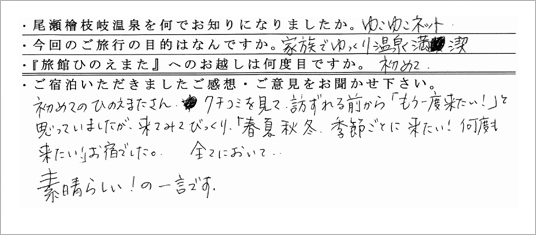 ・尾瀬檜枝岐温泉を何でお知りになりましたか。ゆこゆこネット
・今回のご旅行の目的はなんですか。家族でゆっくり温泉満喫
・『旅館ひのえまた』へのお越しは何度目ですか。初めて
・ご宿泊いただきましたご感想・ご意見をお聞かせ下さい。
初めてのひのえまたさん。クチコミを見て、訪ずれる前から「もう一度来たい！」と
思っていましたが、来てみてびっくり、「春夏秋冬、季節ごとに来たい！何度も
来たい」お宿でした。 全てにおいて‥
素晴らしい！の一言です。